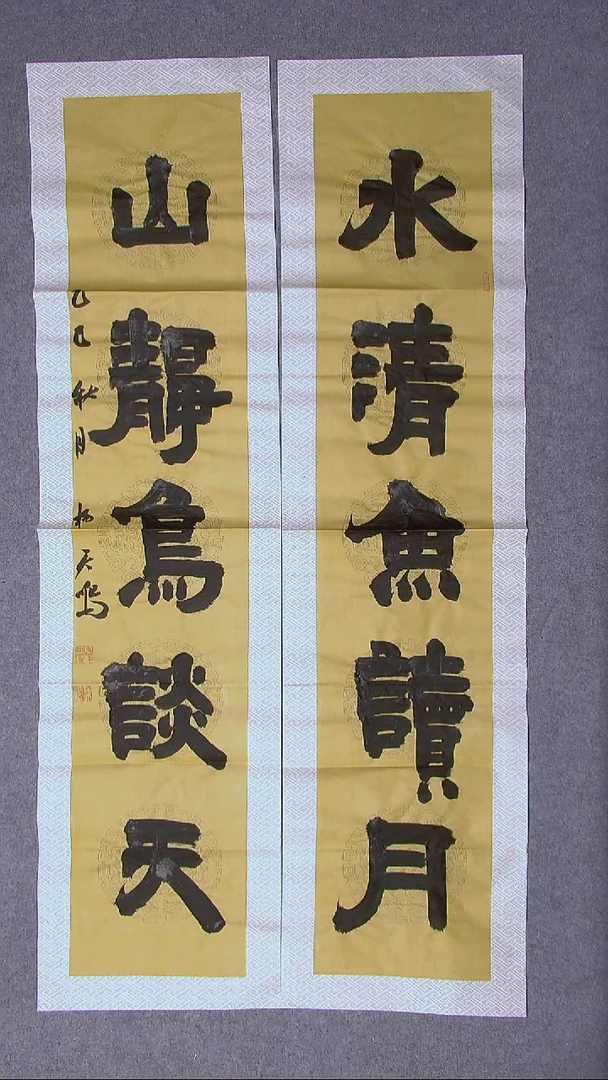 水清魚讀月
山靜鳥談天
己巳秋月 楊天鸞